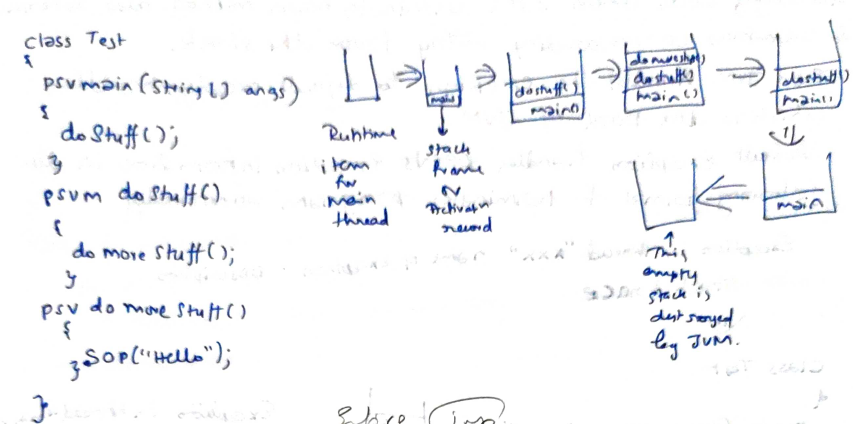 class Test
{
psvmain(String[] args)
{
doStuff();
}
psvm doStuff()
{
do more Stuff();
}
psv do more Stuff()
{
SOP("Hello");
}
}
main
doStuff()
main()
domorestuff()
dostuff()
main()
dostuff()
main()
main
Runtime
item
for
main
thread
stack
frame
or
Activatn
record
This
empty
stack is
destroyed
by JVM.